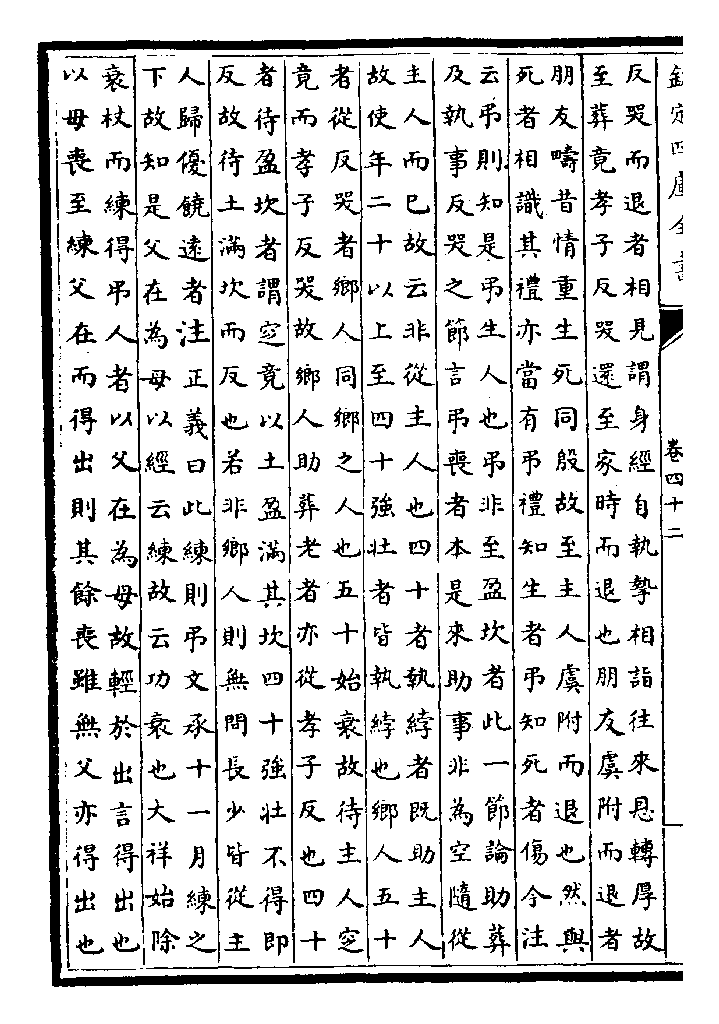 欽定四庫全書
卷四十二
反哭而退者相見謂身經自執摯相詣往來恩轉厚故
至葬竟孝子反哭還至家時而退也朋友虞附而退者
朋友疇昔情重生死同殷故至主人虞附而退也然與
死者相識其禮亦當有弔禮知生者弔知死者傷今注
云弔則知是弔生人也弔非至盈坎者此一節論助葬
及執事反哭之節言弔喪者本是來助事非為空隨從
主人而已故云非從主人也四十者執綍者既助主人
故使年二十以上至四十強壯者皆執綍也鄉人五十
者從反哭者鄉人同鄉之人也五十始衰故待主人窆
竟而孝子反哭故鄉人助葬老者亦從孝子反也四十
者待盈坎者謂窆竟以土盈滿其坎四十強壯不得即
反故待土滿坎而反也若非鄉人則無問長少皆從主
人歸優饒遠者注正義曰此練則弔文承十一月練之
下故知是父在為母以經云練故云功衰也大祥始除
衰杖而練得弔人者以父在為母故輕於出言得出也
以母喪至練父在而得出則其餘喪雖無父亦得出也